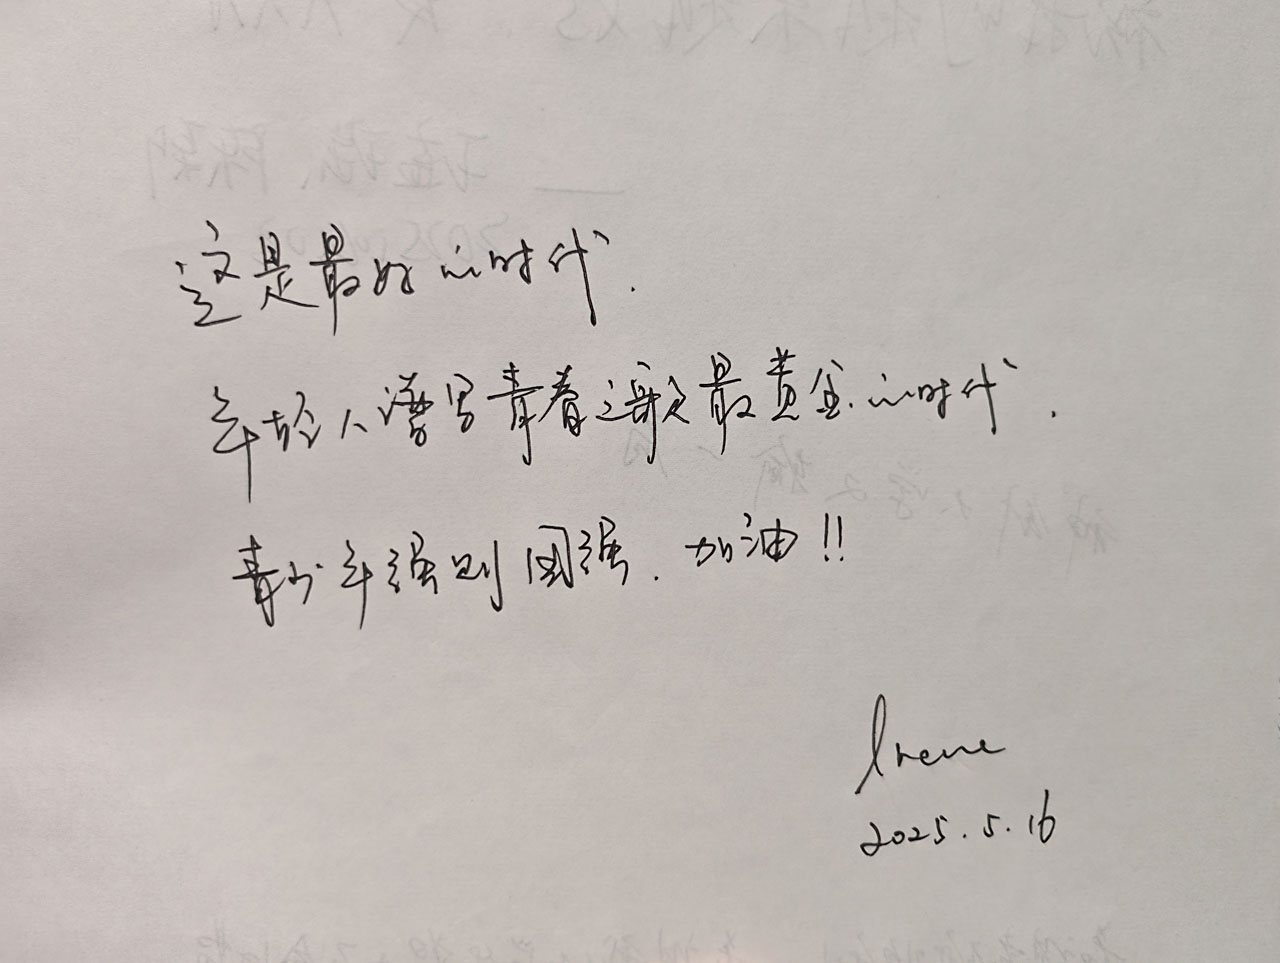 这是最好的时代.
年轻人谱写青春之歌最黄金的时代.
青少年强则国强.加油!!
Irene
2025.5.16